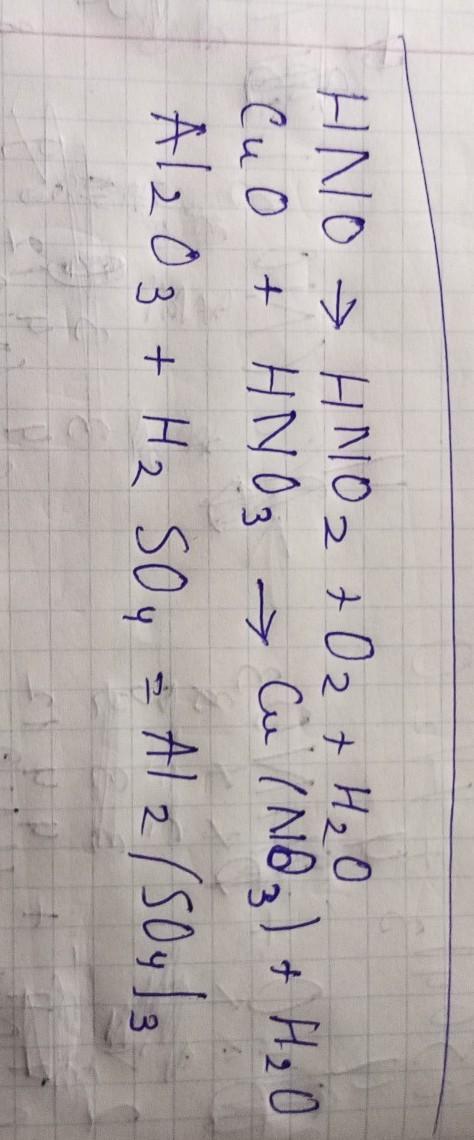 HNO → HNO2 + O2 + H2O
CuO + HNO3 → Cu(NO3) + H2O
Al2O3 + H2SO4 = Al2(SO4)3